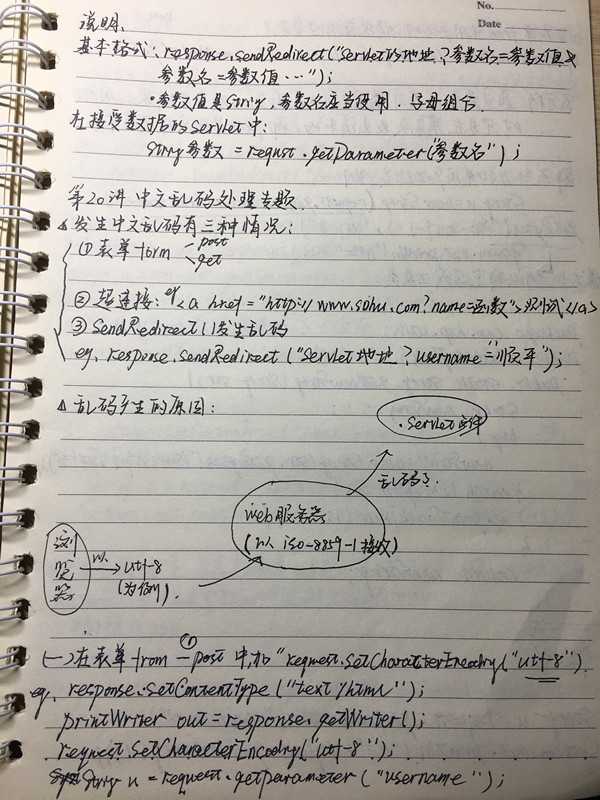 No.
Date
说明.
基本格式: response.sendRedirect("Servlet的地址?参数名=参数值&
参数名=参数值…");
•参数值是String, 参数名应当使用.字母组合.
在接受数据的Servlet中:
String参数 = requst.getParameter("参数名");
第20讲 中文乱码处理专题.
△发生中文乱码有三种情况:
①表单form post
get
②超连接: eg <a href="http://www.sohu.com?name=函数">测试</a>
③SendRedirect()发生乱码
eg. response.sendRedirect("Servlet地址?username=顺平");
△乱码产生的原因:
.Servlet文件
乱码了.
web服务器
(以 iso-8859-1接收)
浏览器 以 utf-8
(为例).
①
(一)在表单from—post中,加"request.setCharacterEncodry("utf-8")
eg. response.setContentType("text/html");
printWriter out=response.getWriter();
request.setCharacterEncodry("utf-8");
String u=request.getparameter("username");